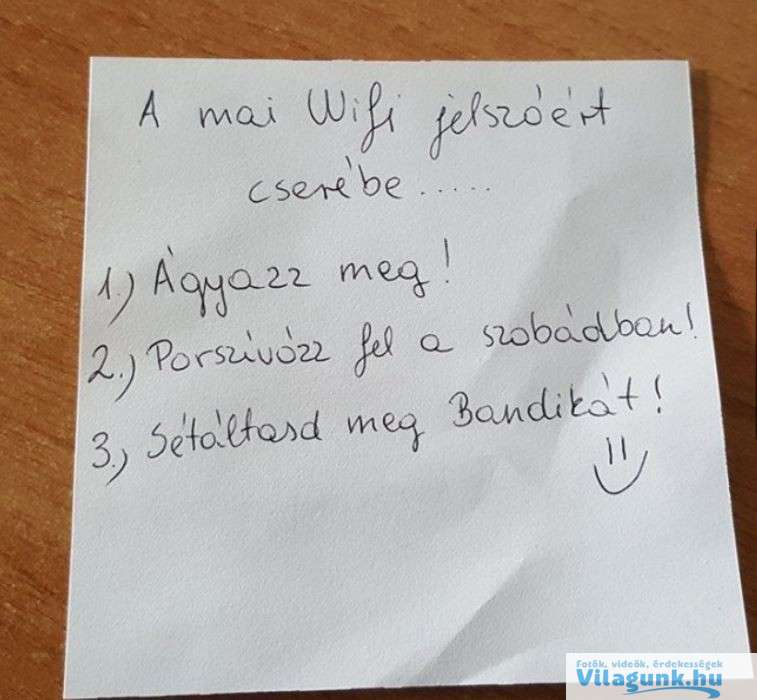 A mai Wifi jelszóért
cserébe.....
1.) Ágyazz meg!
2.) Porszívózz fel a szobádban!
3.) Sétáltasd meg Bandikát!
Fotók, videók, érdekességek
Vilagunk.hu